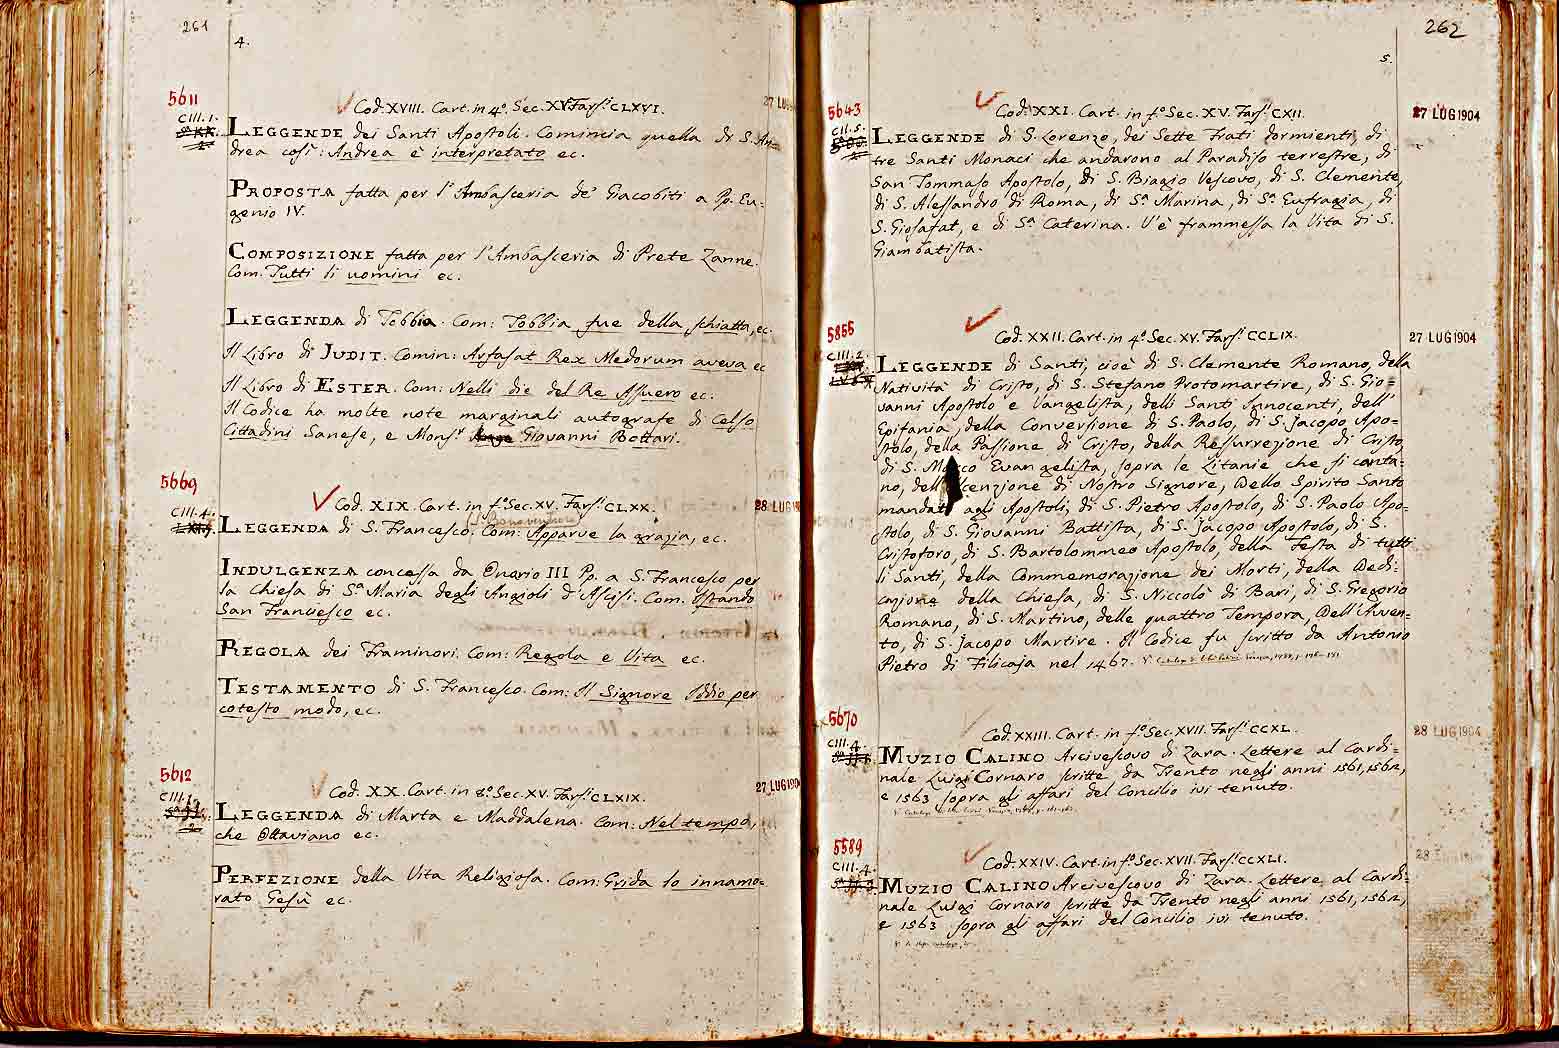 261
4.
5611
27 LUG
CIII. 1.
Cod. XVIII. Cart. in 4º. Sec. XV. Farsⁱ. CLXVI.
LEGGENDE dei Santi Apostoli. Comincia quella di S. An=
drea così: Andrea è interpretato ec.
PROPOSTA fatta per l'Ambasceria de' Giacobiti a Pp. Eu=
genio IV.
COMPOSIZIONE fatta per l'Ambasceria di Prete Zanne.
Com: Tutti li uomini ec.
LEGGENDA di Tobbia. Com: Tobbia fue della schiatta, ec.
Il Libro di JUDIT. Comin: Arfasat Rex Medorum aveva ec
Il Libro di ESTER. Com: Nelli die del Re Assuero ec.
Il Codice ha molte note marginali autografe di Celso
Cittadini Sanese, e Monsʳ Giovanni Bottari.
5669
28 LUG
CIII. 4.
Cod. XIX. Cart. in fº. Sec. XV. Farsⁱ. CLXX.
LEGGENDA di S. Francesco. Com: Apparve la grazia, ec.
INDULGENZA concessa da Onorio III Pp. a S. Francesco per
la Chiesa di Sª Maria degli Angioli d'Ascisi. Com. Istando
San Francesco ec.
REGOLA dei Framinori. Com: Regola e Vita ec.
TESTAMENTO di S. Francesco. Com: Il Signore Iddio per
cotesto modo, ec.
5612
27 LUG 190
CIII. 1.
Cod. XX. Cart. in 8º. Sec. XV. Farsⁱ. CLXIX.
LEGGENDA di Marta e Maddalena. Com: Nel tempo,
che Ottaviano ec.
PERFEZIONE della Vita Religiosa. Com: Grida lo innamo=
rato Gesù ec.
262
5.
5643
27 LUG 1904
CII. 5.
Cod. XXI. Cart. in fº. Sec. XV. Farsⁱ. CXII.
LEGGENDE di S. Lorenzo, dei Sette Frati dormienti, di
tre Santi Monaci che andarono al Paradiso terrestre, di
San Tommaso Apostolo, di S. Biagio Vescovo, di S. Clemente,
di S. Alessandro di Roma, di Sª Marina, di Sª Eufragia, di
S. Giosafat, e di Sª Caterina. V'è frammessa la Vita di S.
Giambatista.
5855
27 LUG 1904
CIII. 2.
Cod. XXII. Cart. in 4º. Sec. XV. Farsⁱ. CCLIX.
LEGGENDE di Santi, cioè di S. Clemente Romano, della
Natività di Cristo, di S. Stefano Protomartire, di S. Gio=
vanni Apostolo e Vangelista, delli Santi Innocenti, dell'
Epifania, della Conversione di S. Paolo, di S. Jacopo Apo=
stolo, della Passione di Cristo, della Ressurrezione di Cristo
di S. M co Evangelista, sopra le Litanie che si canta=
no, dell cenzione di Nostro Signore, dello Spirito Santo
mandat agli Apostoli, di S. Pietro Apostolo, di S. Paolo Apo=
stolo, di S. Giovanni Battista, di S. Jacopo Apostolo, di S.
Cristoforo, di S. Bartolommeo Apostolo, della Festa di tutti
li Santi, della Commemorazione dei Morti, della Dedi=
cazione della Chiesa, di S. Niccolò di Bari, di S. Gregorio
Romano, di S. Martino, delle quattro Tempora, dell'Avven=
to, di S. Jacopo Martire. Il Codice fu scritto da Antonio
Pietro di Filicaja nel 1467.
5670
28 LUG 1904
CIII. 4.
Cod. XXIII. Cart. in fº. Sec. XVII. Farsⁱ. CCXL.
MUZIO CALINO Arcivescovo di Zara. Lettere al Cardi=
nale Luigi Cornaro scritte da Trento negli anni 1561, 1562,
e 1563 sopra gli affari del Concilio ivi tenuto.
5589
28
CIII. 4.
Cod. XXIV. Cart. in fº. Sec. XVII. Farsⁱ. CCXLI.
MUZIO CALINO Arcivescovo di Zara. Lettere al Cardi=
nale Luigi Cornaro scritte da Trento negli anni 1561, 1562,
e 1563 sopra gli affari del Concilio ivi tenuto.